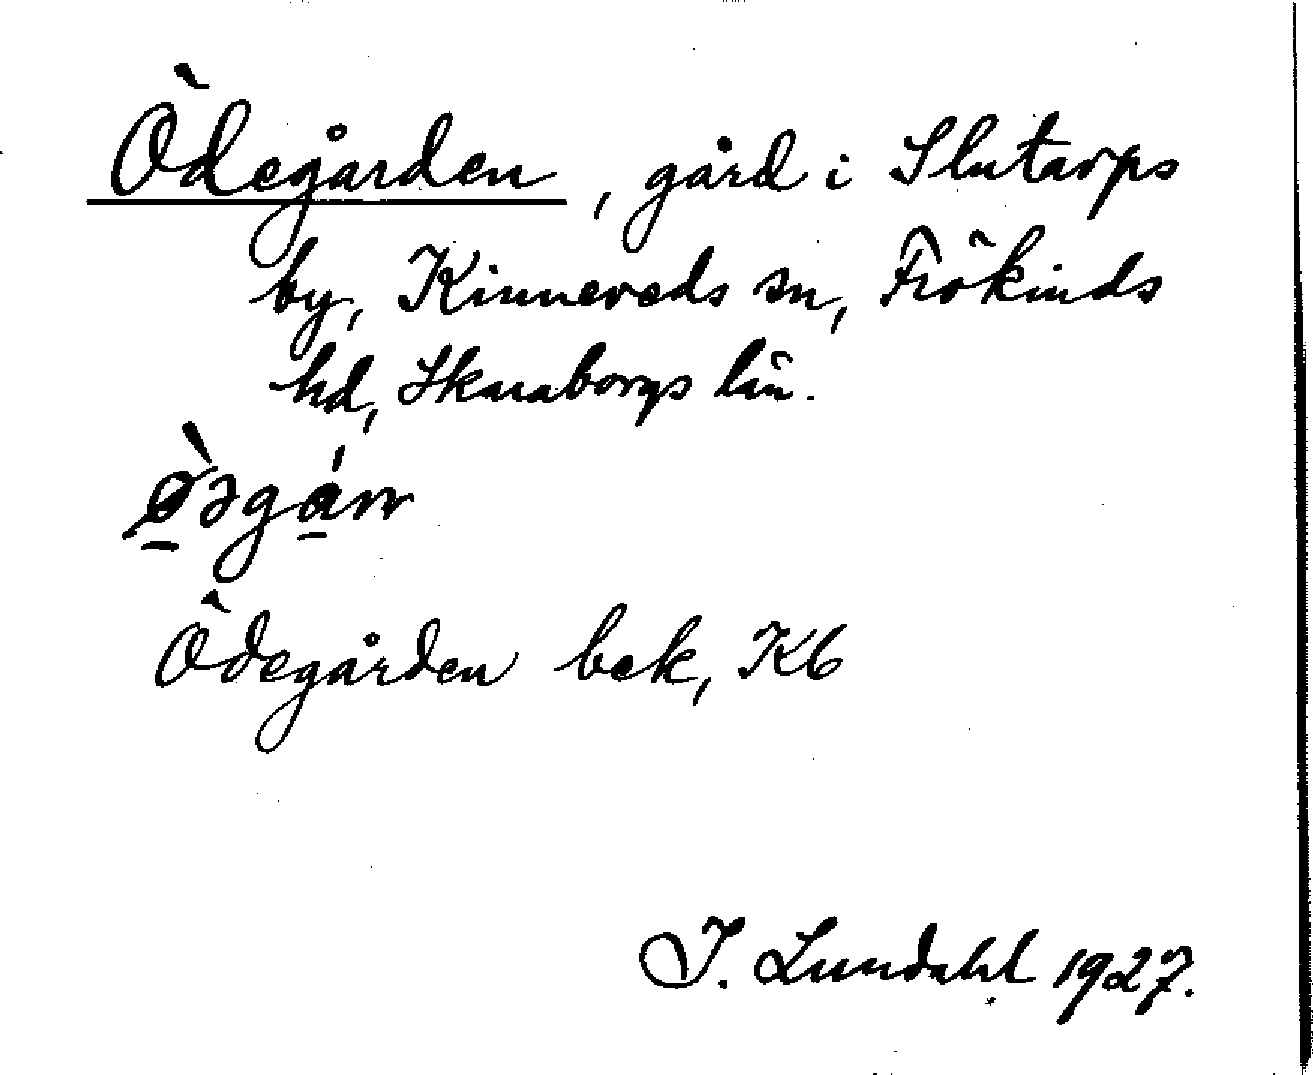 Ödegården, gård i Slutarps
by, Kinneveds sn, Frökinds
hd, Skaraborgs län.
ø̱̀əgá̱rr
Ödegården bek, Kb
I. Lundahl 1927.